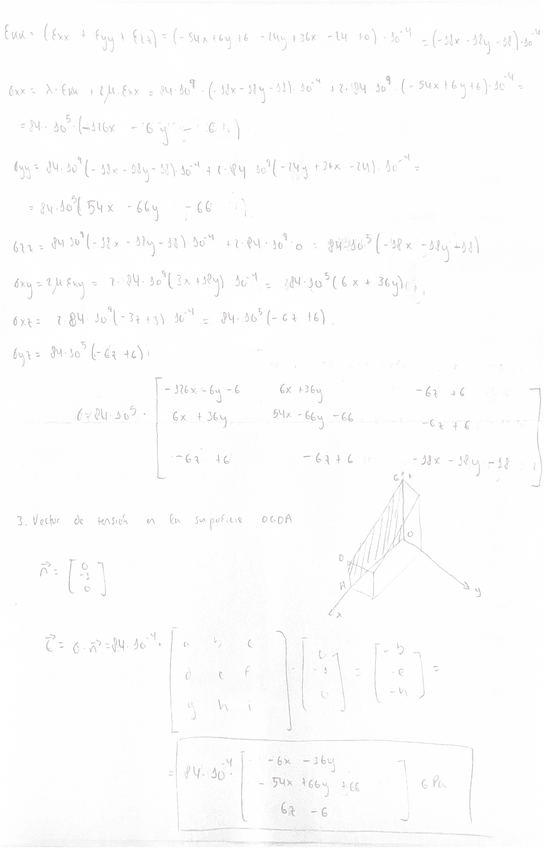 εκκ = (εxx + εyy + εzz) = (-54x+6y+6 -24y+36x -24 +0) · 10^-4 = (-18x-18y-18)·10^-4
σxx = λ·εκκ + 2μ·εxx = 84·10^9 · (-18x-18y-18)·10^-4 + 2·84·10^9 · (-54x+6y+6)·10^-4 =
= 84·10^5 · (-126x - 6y - 6)
σyy = 84·10^9 (-18x-18y-18)·10^-4 + 2·84·10^9 (-24y+36x-24)·10^-4 =
= 84·10^5 ( 54x -66y -66 )
σzz = 84·10^9 (-18x -18y -18) 10^-4 + 2·84·10^9 · 0 = 84·10^5 (-18x -18y -18)
σxy = 2μ εxy = 2·84·10^9 (3x+18y) 10^-4 = 84·10^5 (6x + 36y)
σxz = 2·84·10^9 (-3z+3) 10^-4 = 84·10^5 (-6z +6)
σyz = 84·10^5 (-6z +6)
-126x -6y -6 6x +36y -6z +6
σ = 84·10^5 · 6x +36y 54x -66y -66 -6z +6
-6z +6 -6z +6 -18x -18y -18
3. Vector de tensión en la superficie OGDA
G z
O
D
A
x
y
n = [ 0 -1 0 ]
a b c 0 -b
t = σ·n = 84·10^-4 · d e f · -1 = -e =
g h i 0 -h
-6x -36y
= 84·10^-4 · -54x +66y +66 GPa
6z -6